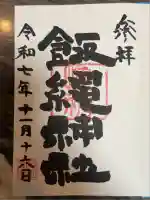 奉拝
飯繩神社
令和七年十一月十六日